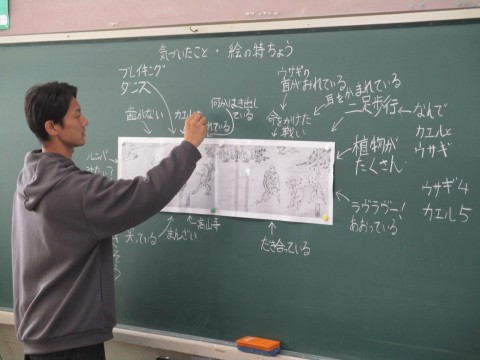 気づいたこと・絵の特ちょう
ブレイキング
ダンス
歯がない
カエルに
何かはき出し
ている
れている
ウサギの
首がおれている
耳をかまれている
命をかけた
戦い
二足歩行
なんで
カエルと
ウサギ
植物が
たくさん
ウサギ4
カエル5
ラヴラヴー!
あおっている
だき合っている
高山寺
まんざい
笑っている
ルンバ